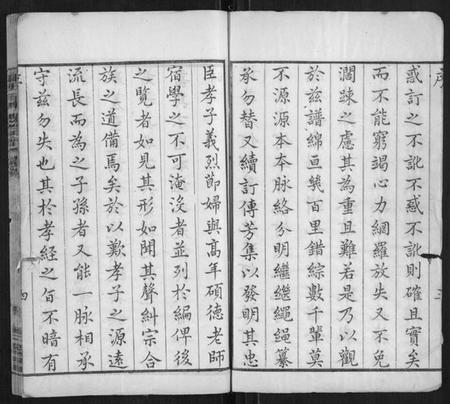 序
惑訂之不訛不惑不訛則確且實矣
而不能窮竭心力網羅放失又不免
濶踈之慮其為重且難若是乃以觀
於茲譜綿亘幾百里錯綜數千輩莫
不源源本本脉絡分明繼繼繩繩纂
承勿替又續訂傳芳集以發明其忠
三
臣孝子義烈節婦與高年碩德老師
宿學之不可淹没者並列於編俾後
之覽者如見其形如聞其聲糾宗合
族之道備焉矣於以歎孝子之源遠
流長而為之子孫者又能一脉相承
守兹勿失也其於孝經之旨不暗有
四